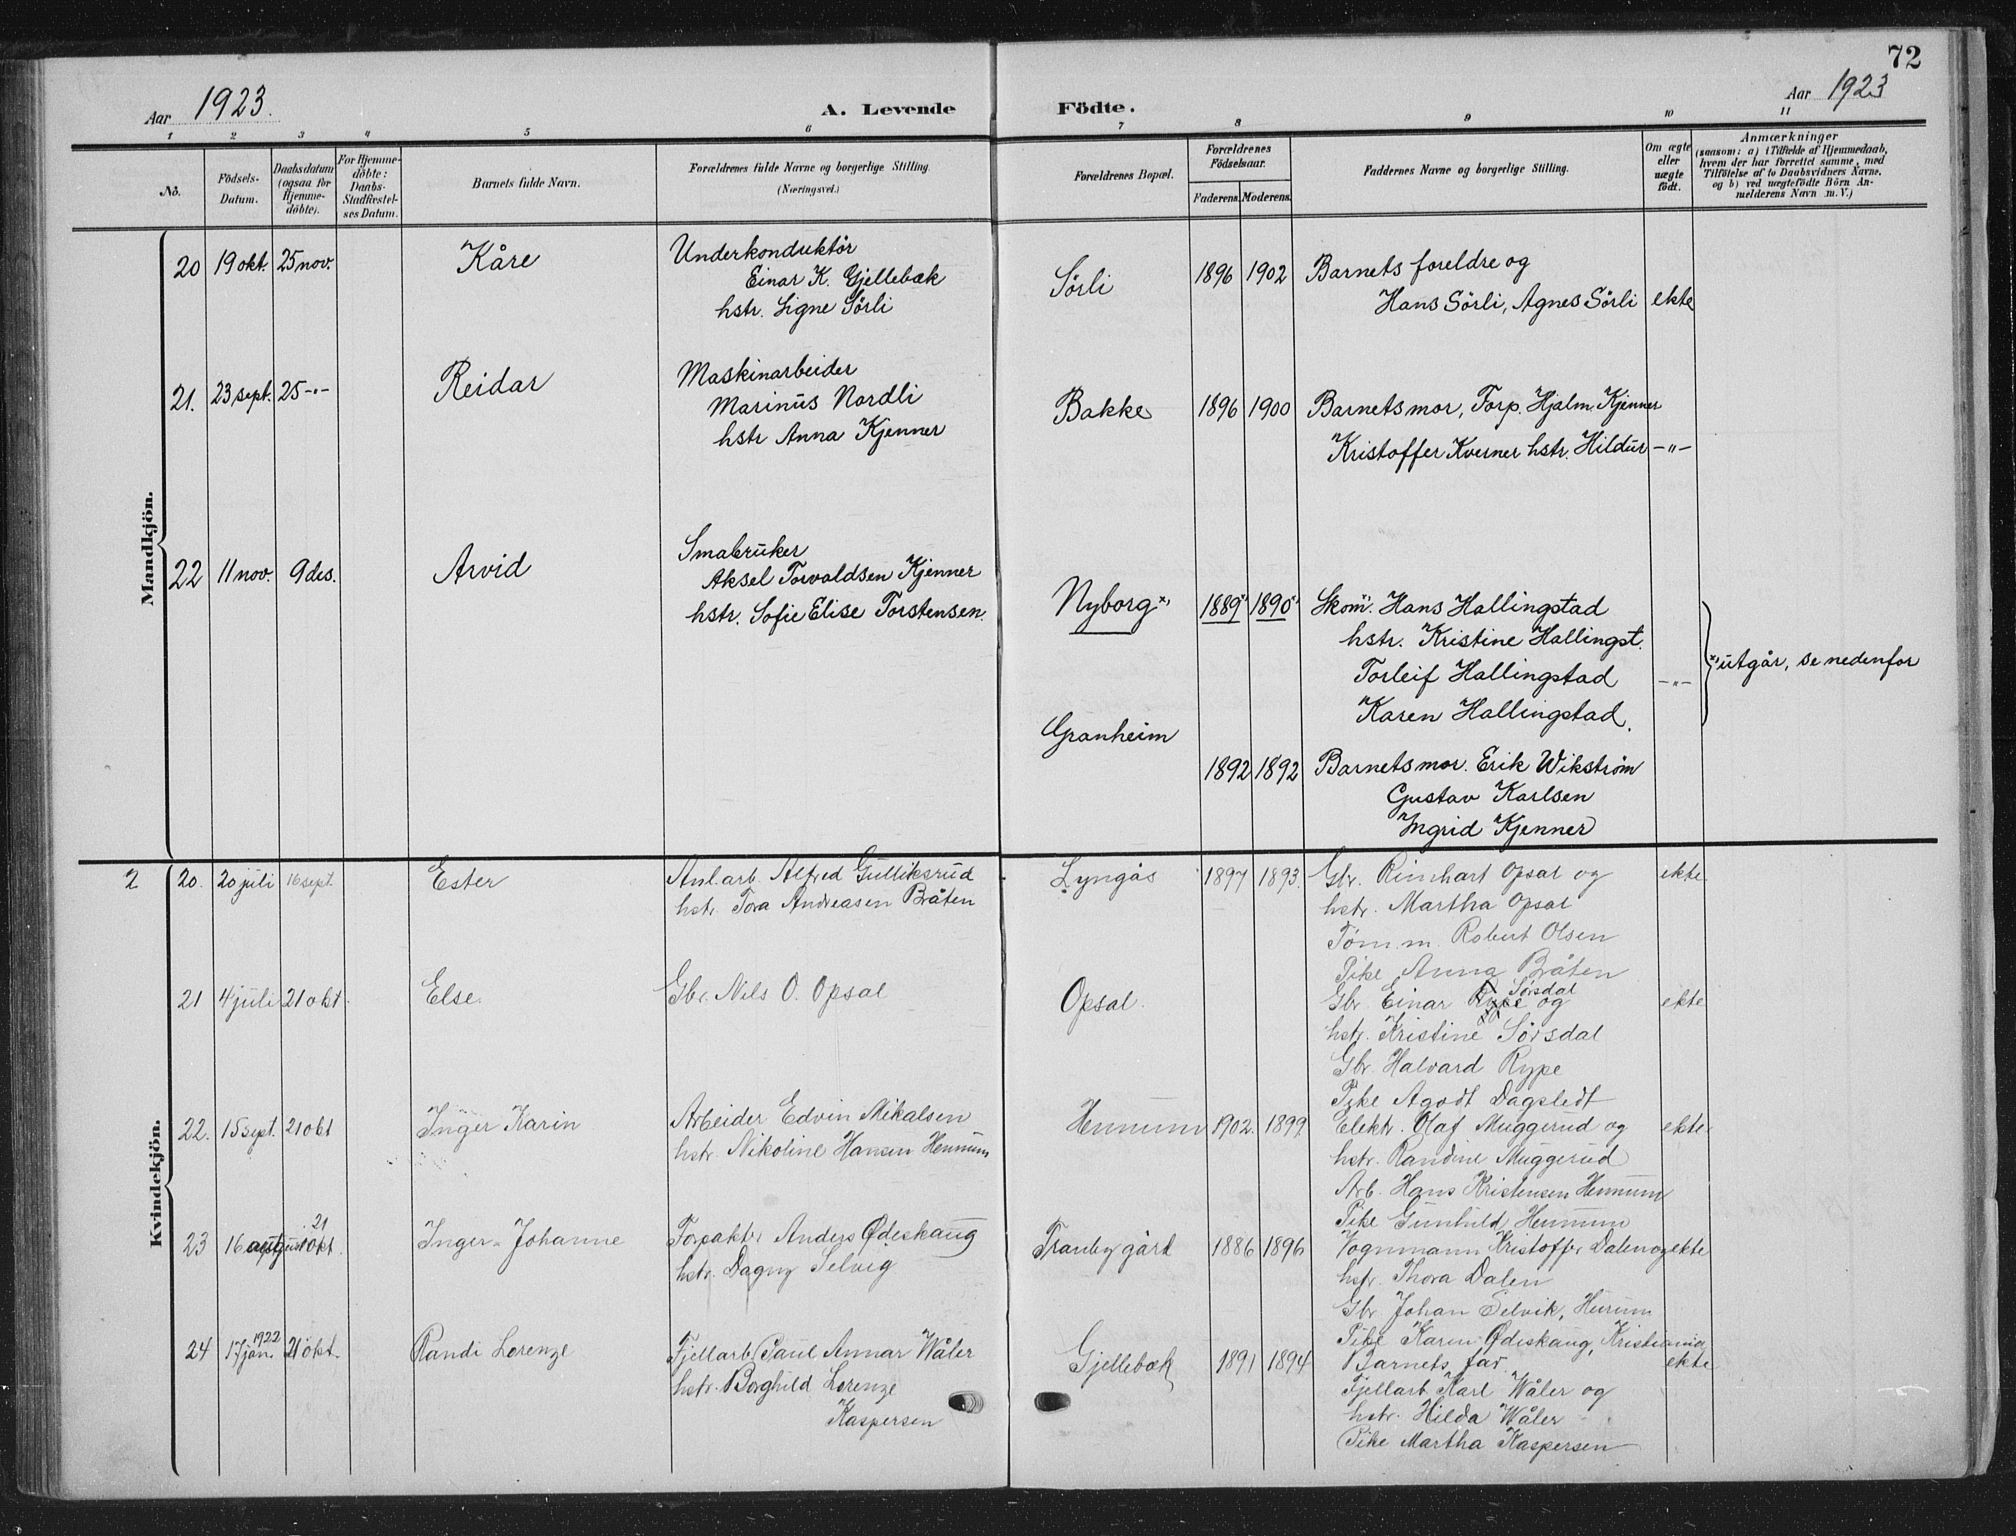 72
Aar 1923.
A. Levende Födte.
Aar 1923
1 2 3 4 5 6 7 8 9 10 11
No.
Födsels-Datum.
Daabsdatum (ogsaa for Hjemmedöbte).
For Hjemmedöbte: Daabs-Stadfæstelses Datum.
Barnets fulde Navn.
Forældrenes fulde Navne og borgerlige Stilling. (Næringsvei.)
Forældrenes Bopæl.
Forældrenes Födselsaar.
Faderens. Moderens.
Faddernes Navne og borgerlige Stilling.
Om ægte eller uægte födt.
Anmærkninger
(saasom: a) i Tilfælde af Hjemmedaab, hvem der har forrettet samme, med Tilföielse af to Daabsvidners Navne, og b) ved uægtefödte Börn Anmelderens Navn m. V.)
Mandkjön.
20 19 okt. 25 nov. Kåre
Underkonduktör
Einar K. Gjellebæk
hstr. Signe Sörli
Sörli 1896 1902
Barnets foreldre og
Hans Sörli, Agnes Sörli ekte
21. 23 sept. 25 -"- Reidar
Maskinarbeider
Marinus Nordli
hstr Anna Kjenner
Bakke 1896 1900
Barnets mor, Torp. Hjalm. Kjenner
Kristoffer Kverner hstr. Hildur -"-
22 11 nov. 9 des. Arvid
Småbruker
Aksel Torvaldsen Kjenner
hstr. Sofie Elise Torstensen.
Nyborg x) 1889 x) 1890 x)
Skom. Hans Hallingstad
hstr. Kristine Hallingst.
Torleif Hallingstad -"-
Karen Hallingstad.
x) utgår, se nedenfor
Granheim
1892 1892
Barnets mor. Erik Wikström
Gustav Karlsen
Ingrid Kjenner
Kvindekjön.
2 20. 20 juli 16 sept. Ester
Anl.arb. Alfred Gulliksrud
hstr. Tora Andreasen Bråten
Lyngås 1897 1893.
Gbr. Reinhart Opsal og ekte
hstr. Martha Opsal
Töm.m. Robert Olsen
Pike Anna Bråten
21 4 juli 21 okt. Else.
Gbr. Nils O. Opsal
Opsal.
Sörsdal
Gbr. Einar Rype og ekte
hstr. Kristine Sörsdal
Gbr. Halvard Rype
Pike Agodt Dagsledt
22. 15 sept. 21 okt Inger Karin
Arbeider Edvin Mikalsen
hstr. Nikoline Hansen Hennum
Hennum 1902. 1899.
Elektr. Olaf Muggerud og ekte
hstr. Randine Muggerud
Arb. Hans Kristensen Hennum
Pike Gunhild Hennum
23 16 august 21 okt. Inger Johanne
Forpakter Anders Ødeskaug
hstr. Dagny Selvig
Tranby gård 1886 1896
Vognmann Kristoffer Dalen og ekte
hstr. Thora Dalen
Gbr Johan Selvik, Hurum
Pike Karen Ødeskaug, Kristiania
24 17 jan. 1922 21 okt. Randi Lorenze
Fjellarb. Paul Annar Wåler
hstr. Borghild Lorenze
Kaspersen
Gjellebæk 1891 1894
Barnets far. ekte
Fjellarb Karl Wåler og
hstr. Hilda Wåler
Pike Martha Kaspersen